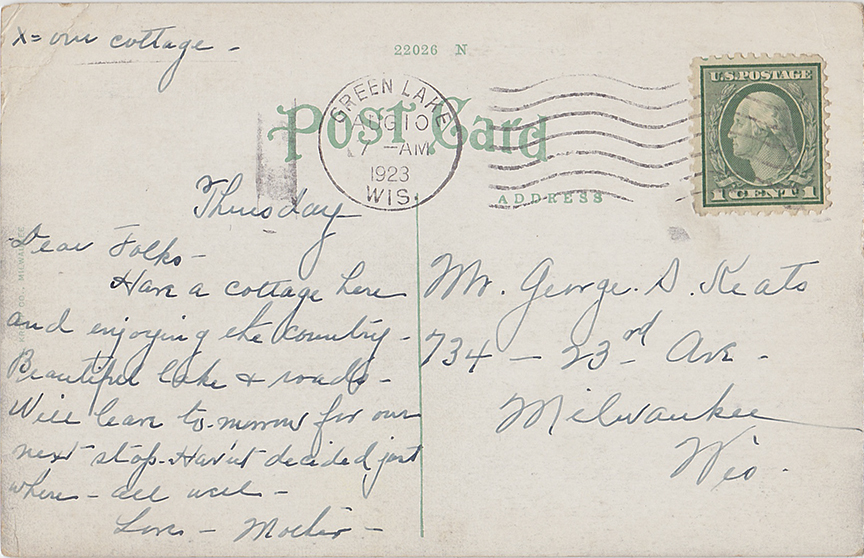 x = our cottage -
22026 N
Post Card
GREEN LAKE
AUG 10
7 - AM
1923
WIS.
U.S. POSTAGE
1 CENT 1
ADDRESS
Thursday
Dear Folks -
Have a cottage here
and enjoying the country -
Beautiful lake & roads -
Will leave to-morrow for our
next stop - Hav'nt decided just
where - all well -
Love - Mother -
Mr. George. S. Keats
734 - 23rd Ave -
Milwaukee
Wis.
CO., MILWAUKEE